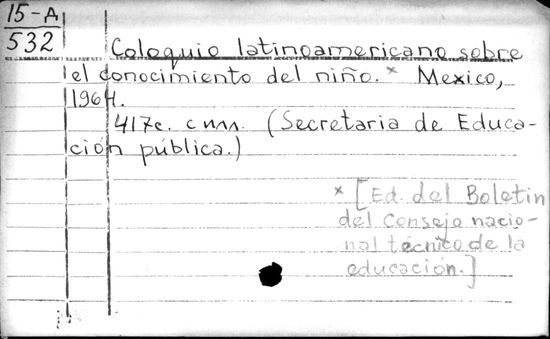 15-A
532
Coloquio latinoamericano sobre
el conocimiento del niño.* Mexico,
1964.
417c. с илл. (Secretaria de Educa-
ción pública.)
* [Ed. del Boletin
del Consejo nacio-
nal técnico de la
educación.]